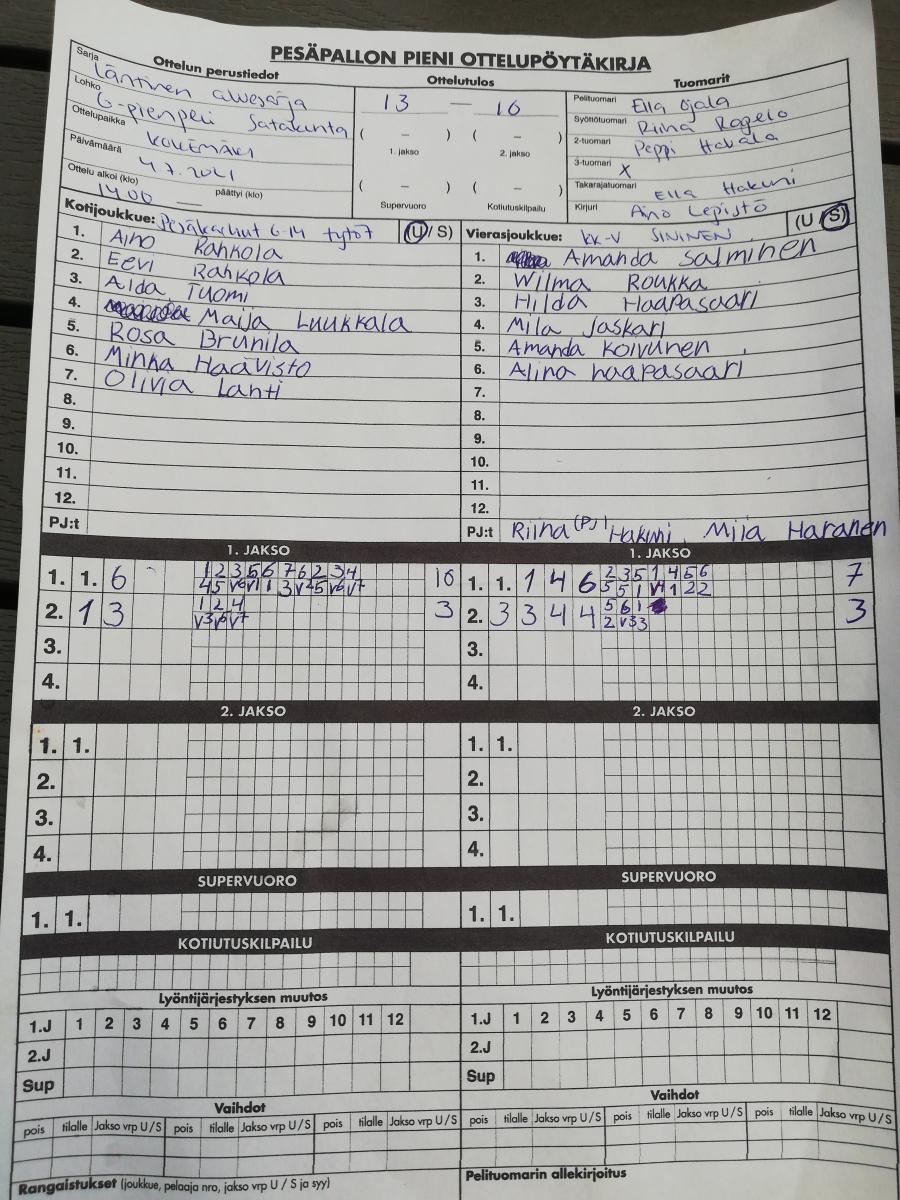 PESÄPALLON PIENI OTTELUPÖYTÄKIRJA
Ottelun perustiedot
Sarja Läntinen aluesarja
Lohko G-pienpeli Satakunta
Ottelupaikka KOKEMÄKI
Päivämäärä 4.7.2021
Ottelu alkoi (klo) 1400 päättyi (klo)
Ottelutulos
13 — 10
( – ) ( – )
1. jakso 2. jakso
( – ) ( – )
Supervuoro Kotiutuskilpailu
Tuomarit
Pelituomari Ella Ojala
Syöttötuomari Riina
2-tuomari Peppi
3-tuomari X
Takarajatuomari Ella Hakuni
Kirjuri Aino Lepistö
Kotijoukkue: G-14 tytöt (U / S)
1. Aino Rahkola
2. Eevi Rahkola
3. Alda Tuomi
4. Maija Luukkala
5. Rosa Brunila
6. Minka Haavisto
7. Olivia Lahti
8.
9.
10.
11.
12.
PJ:t
Vierasjoukkue: KK-V SININEN (U / S)
1. Amanda Salminen
2. Wilma Roukka
3. Hilda Haapasaari
4. Mila Jaskari
5. Amanda Koivunen
6. Alina haapasaari
7.
8.
9.
10.
11.
12.
PJ:t Riina (PJ) Hakuni, Miia Haranen
1. JAKSO
1. 1. 6 1 2 3 5 6 7 6 2 3 4 10
4 5 V6 V1 1 3 V2 5 V6 V7
2. 1 3 1 2 4 3
V3 V5 V7
3.
4.
1. JAKSO
1. 1. 1 4 6 2 3 5 1 4 5 6 7
5 5 1 V4 1 2 2
2. 3 3 4 4 5 6 1 3
2 V3 3
3.
4.
2. JAKSO
1. 1.
2.
3.
4.
2. JAKSO
1. 1.
2.
3.
4.
SUPERVUORO
1. 1.
SUPERVUORO
1. 1.
KOTIUTUSKILPAILU
KOTIUTUSKILPAILU
Lyöntijärjestyksen muutos
1.J 1 2 3 4 5 6 7 8 9 10 11 12
2.J
Sup
Lyöntijärjestyksen muutos
1.J 1 2 3 4 5 6 7 8 9 10 11 12
2.J
Sup
Vaihdot
pois tilalle Jakso vrp U / S pois tilalle Jakso vrp U / S pois tilalle Jakso vrp U / S
Vaihdot
pois tilalle Jakso vrp U / S pois tilalle Jakso vrp U / S pois tilalle Jakso vrp U / S
Rangaistukset (joukkue, pelaaja nro, jakso vrp U / S ja syy)
Pelituomarin allekirjoitus